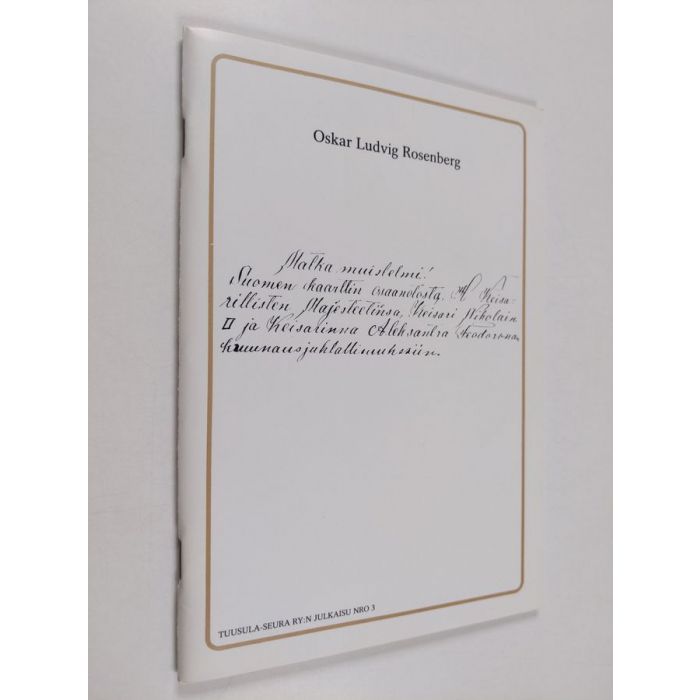 Oskar Ludvig Rosenberg
Matka muistelmi!
Suomen kaarttin osaanolosta. Keisa-
rillisten Majesteetinsa, Keisari Nikolain
II ja Keisarinna Aleksandra Feodorovnan
kruunausjuhlallimuksiin.
TUUSULA-SEURA RY:N JULKAISU NRO 3